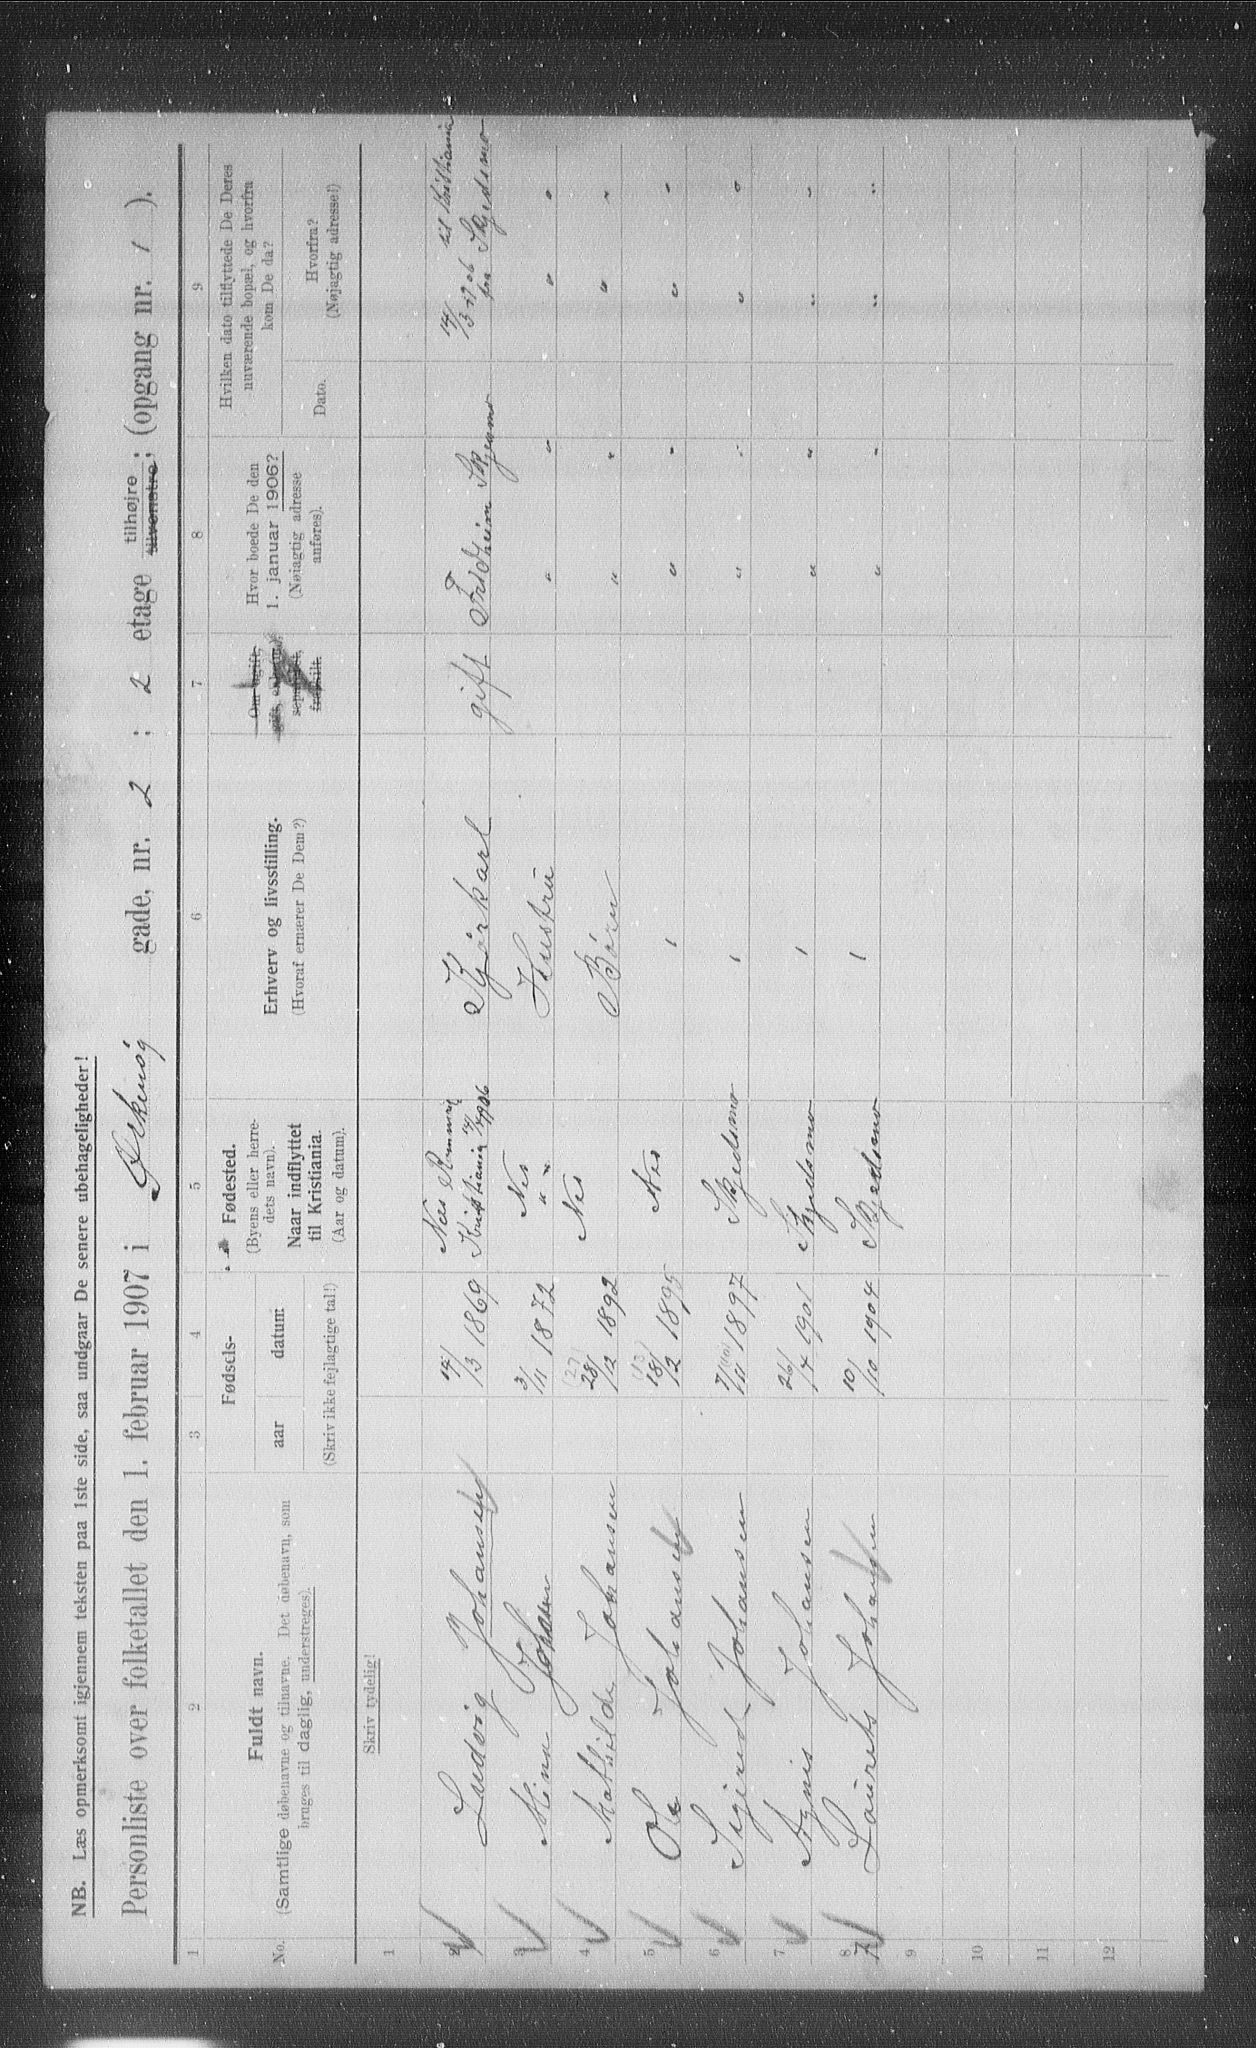 NB. Læs opmerksomt igjennem teksten paa 1ste side, saa undgaar De senere ubehageligheder!
Personliste over folketallet den 1. februar 1907 i gade, nr. 2 ; 2 etage tilhøjre tilvenstre; (opgang nr. 1 ).
1 2 3 4 5 6 7 8 9
No.
Fuldt navn.
(Samtlige døbenavne og tilnavne. Det døbenavn, som
bruges til daglig, understreges).
Fødsels-
aar datum
(Skriv ikke fejlagtige tal!)
Fødested.
(Byens eller herre-
dets navn).
Naar indflyttet
til Kristiania.
(Aar og datum).
Erhverv og livsstilling.
(Hvoraf ernærer De Dem?)
Om ugift,
gift, enke(m.),
separeret,
fraskilt.
Hvor boede De den
1. januar 1906?
(Nøiagtig adresse
anføres).
Hvilken dato tilflyttede De Deres
nuværende bopæl, og hvorfra
kom De da?
Dato.
Hvorfra?
(Nøjagtig adresse!)
Skriv tydelig!
1
2 Ludvig Johansen 14/3 1869 Nes Kristiania 1906 Kjørkarl gift Skjedsmo 14/3 1906 til Kristiania fra Skjedsmo
3 Johansen 3/11 1872 Nes " " Hustru " " " "
4 Mathilde Johansen (27) 28/12 1892 Nes Børn " " " "
5 Ole Johansen (13) 18/2 1895 Nes " " " " "
6 Sigurd Johansen 1897 Skjedsmo " " " " "
7 Agnes Johansen 26/4 1901 Skjedsmo " " " " "
8 Laurits Johansen 10/10 1904 Skjedsmo " " " " "
7
9
10
11
12